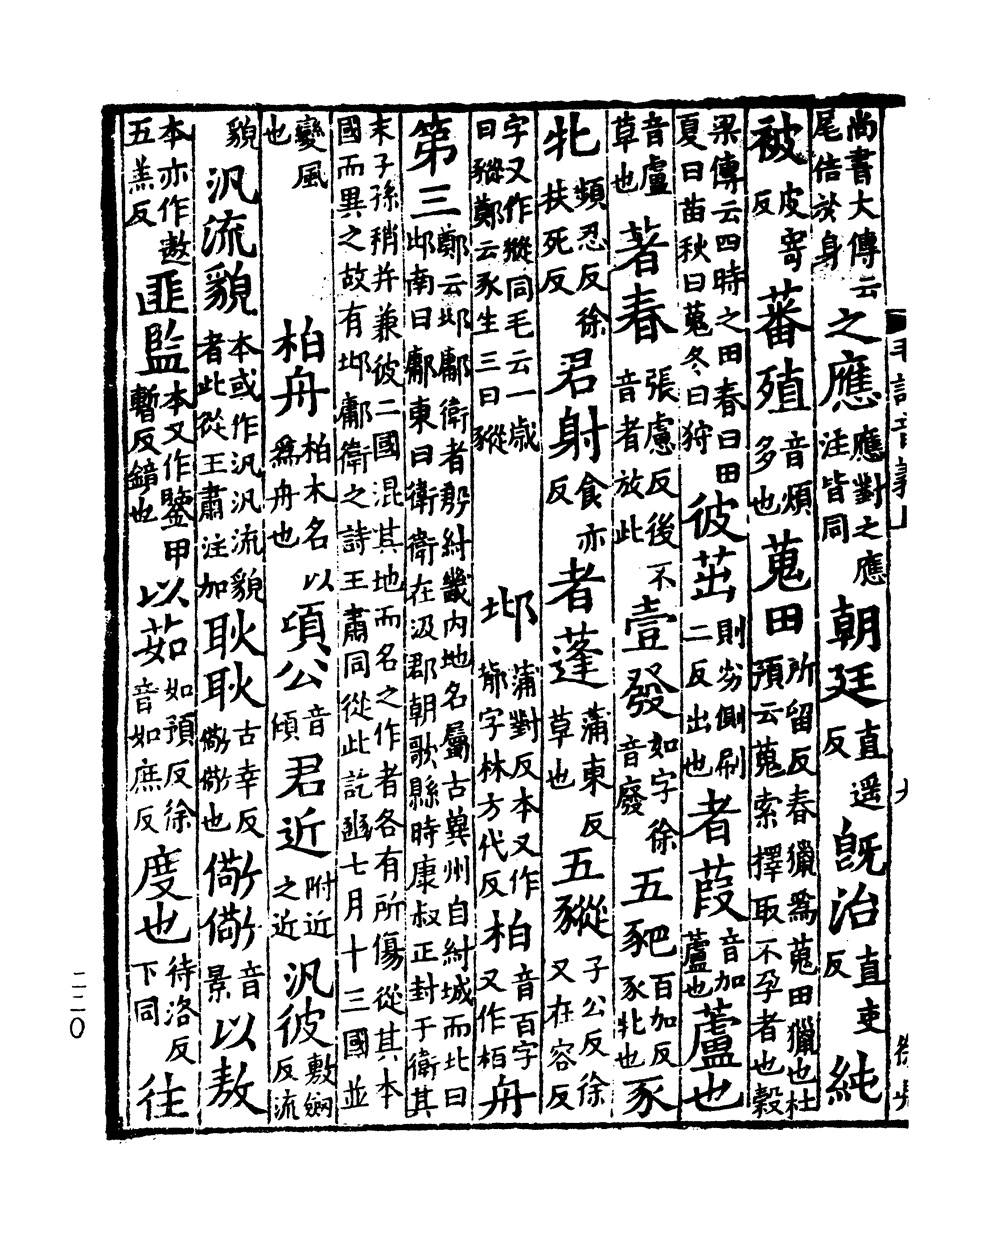 毛詩音義上
尚書大傳云尾倍於身之應應對之應注皆同朝廷直遥反既治直吏反純
被皮寄反蕃殖音煩多也蒐田所留反春獵爲蒐田獵也杜預云蒐索擇取不孕者也穀
梁傳云四時之田春曰田夏曰苗秋曰蒐冬曰狩彼茁則劣側刷二反出也者葭音加蘆也蘆也
音盧草也著春張慮反後不音者放此壹發如字徐音廢五豝百加反豕牝也豕
牝頻忍反徐扶死反君射食亦反者蓬蒲東反草也五豵子公反徐又在容反
字又作豵同毛云一歲曰豵鄭云豕生三曰豵邶蒲對反本又作鄁字林方代反柏音百字又作栢舟
第三鄭云邶鄘衛者殷紂畿内地名屬古冀州自紂城而北曰邶南曰鄘東曰衛衛在汲郡朝歌縣時康叔正封于衛其
末子孫稍并兼彼二國混其地而名之作者各有所傷從其本國而異之故有邶鄘衛之詩王肅同從此訖豳七月十三國並
變風也柏舟柏木名以爲舟也項公音傾君近附近之近汎彼敷劒反流
貌汎流貌本或作汎汎流貌者此從王肅注加耿耿古幸反儆儆也儆儆音景以敖
本亦作遨五羔反匪監本又作鑒甲暫反鏡也以茹如預反徐音如庶反度也待洛反下同往
二二〇